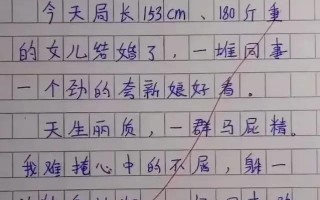 今天局长153cm、180斤重
的女儿结婚了,一堆同事
一个劲的夸新娘好看。
天生丽质,一群马屁精。
我难掩心中的不屑,躲一